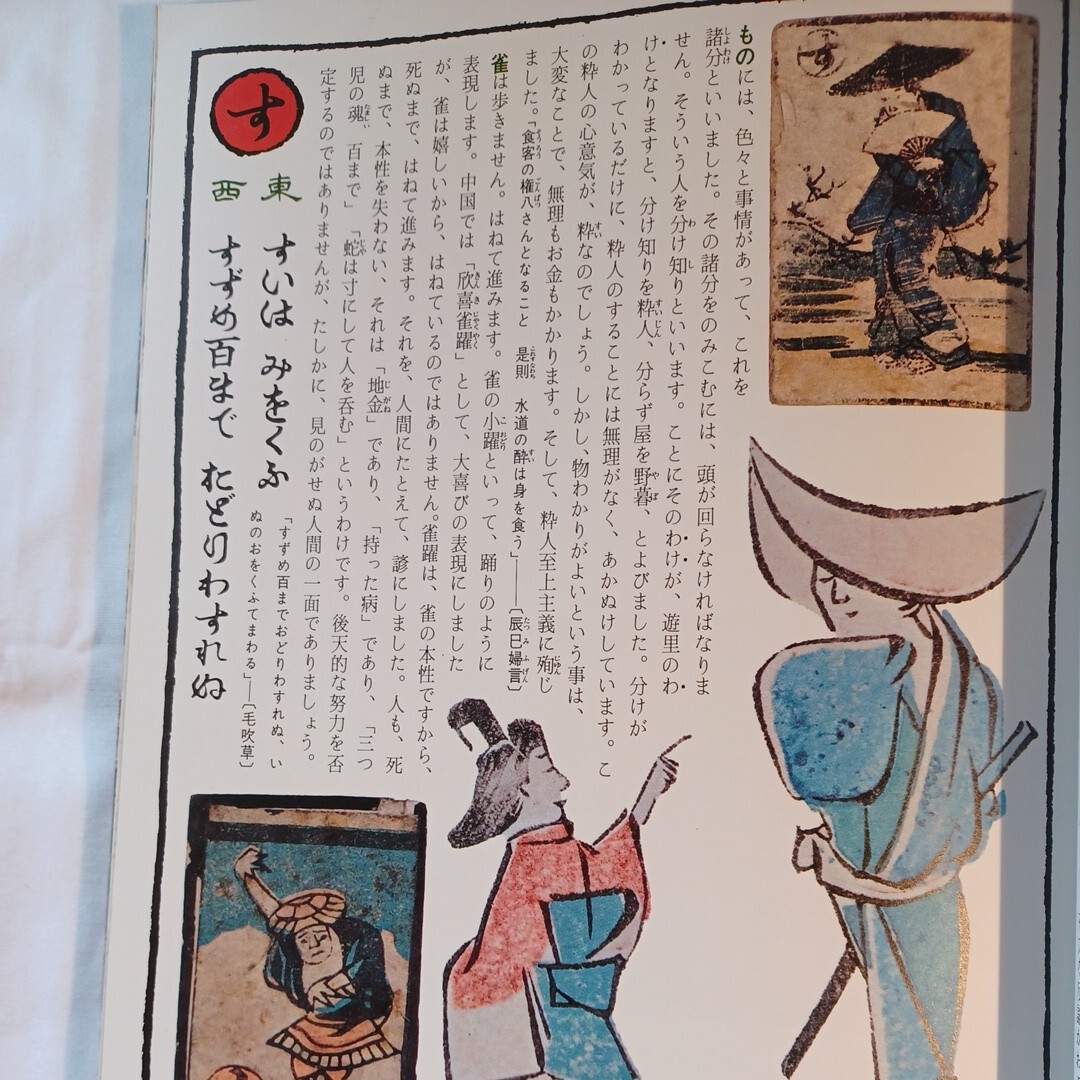 す
ものには、色々と事情があって、これを
諸分といいました。その諸分をのみこむには、頭が回らなければなりま
せん。そういう人を分け知りといいます。ことにそのわけが、遊里のわ
けとなりますと、分け知りを粋人、分らず屋を野暮、とよびました。分けが
わかっているだけに、粋人のすることには無理がなく、あかぬけしています。こ
の粋人の心意気が、粋なのでしょう。しかし、物わかりがよいという事は、
大変なことで、無理もお金もかかります。そして、粋人至上主義に殉じ
ました。「食客の権八さんとなること 是則 水道の酔は身を食う」——〔辰巳婦言〕
雀は歩きません。はねて進みます。雀の小躍といって、踊りのように
表現します。中国では「欣喜雀躍」として、大喜びの表現にしました
が、雀は嬉しいから、はねているのではありません。雀躍は、雀の本性ですから、
死ぬまで、はねて進みます。それを、人間にたとえて、諺にしました。人も、死
ぬまで、本性を失わない、それは「地金」であり、「持った病」であり、「三つ
児の魂 百まで」「蛇は寸にして人を呑む」というわけです。後天的な努力を否
定するのではありませんが、たしかに、見のがせぬ人間の一面でありましょう。
す
東 すいは みをくふ
西 すずめ百まで たどりわすれぬ
「すずめ百までおどりわすれぬ、い
ぬのおをくふてまわる」——〔毛吹草〕